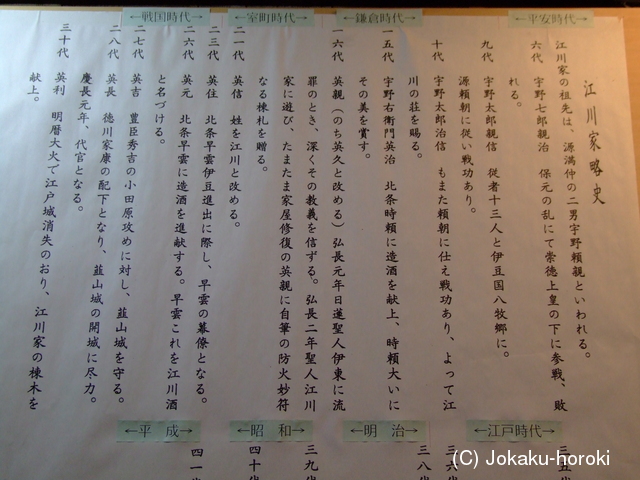 ←平安時代→
←鎌倉時代→
←室町時代→
←戦国時代→
江川家略史
江川家の祖先は、源満仲の二男宇野頼親といわれる。
六代 宇野七郎親治 保元の乱にて崇徳上皇の下に参戦、敗
れる。
九代 宇野太郎親信 従者十三人と伊豆国八牧郷に。
源頼朝に従い戦功あり。
十代 宇野太郎治信 もまた頼朝に仕え戦功あり、よって江
川の荘を賜る。
一五代 宇野右衛門英治 北条時頼に造酒を献上、時頼大いに
その美を賞す。
一六代 英親(のち英久と改める)弘長元年日蓮聖人伊東に流
罪のとき、深くその教義を信ずる。弘長二年聖人江川
家に遊び、たまたま家屋修復の英親に自筆の防火妙符
なる棟札を贈る。
二一代 英信 姓を江川と改める。
二三代 英住 北条早雲伊豆進出に際し、早雲の幕僚となる。
二六代 英元 北条早雲に造酒を進献する。早雲これを江川酒
と名づける。
二七代 英吉 豊臣秀吉の小田原攻めに対し、韮山城を守る。
二八代 英長 徳川家康の配下となり、韮山城の開城に尽力。
慶長元年、代官となる。
三十代 英利 明暦大火で江戸城消失のおり、江川家の棟木を
献上。
←江戸時代→
←明治→
←昭和→
←平成→
三五代
三六代
三八代
三九代
四十代
四一代
(C) Jokaku-horoki